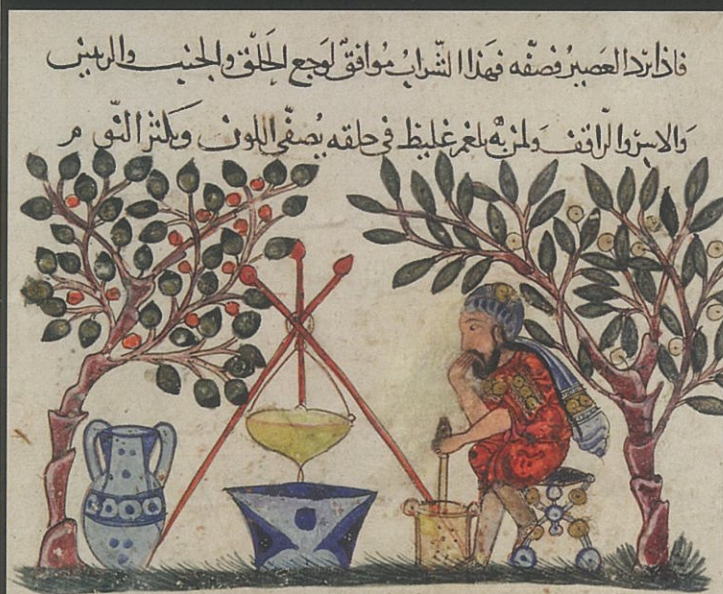 فاذا برد العصير فصفّه فهذا الشّراب مُوافقٌ لوَجع الحَلق والجنب والرئتين
ولمن به بلغم غليظ في حلقه يُصفّي اللون ويكثر النّوم